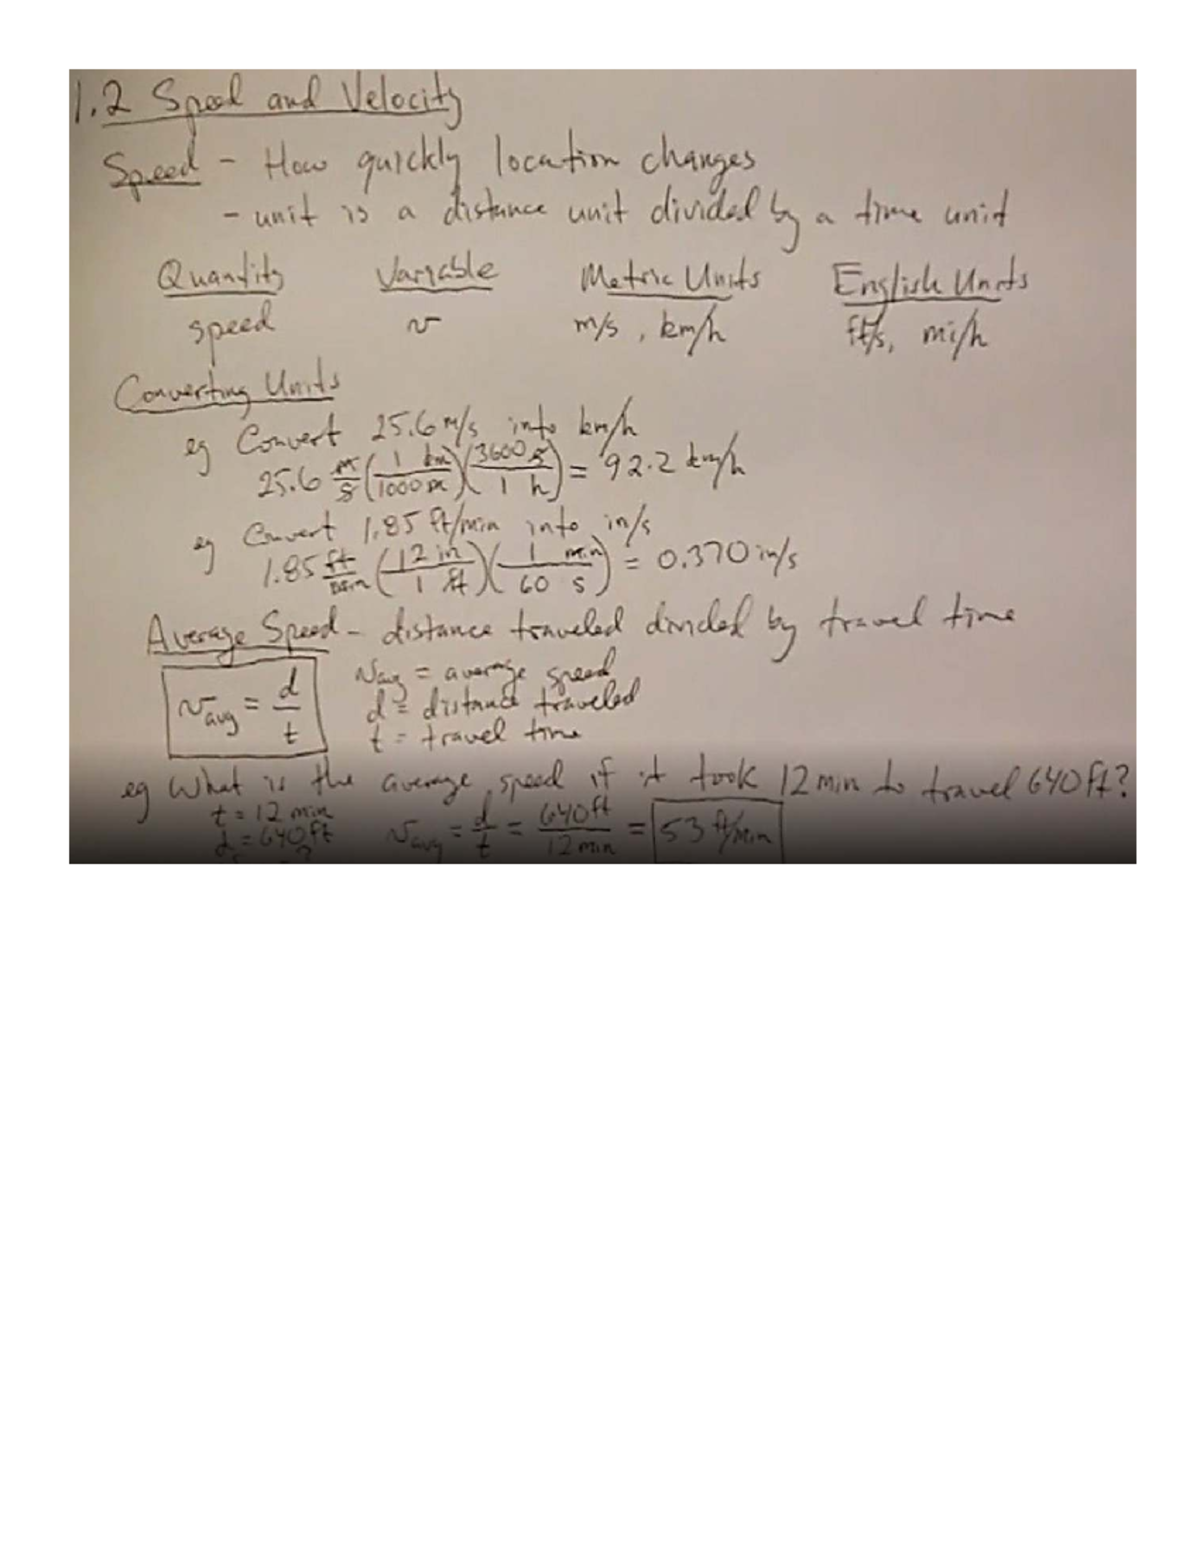 1.2 Speed and Velocity
Speed - How quickly location changes
- unit is a distance unit divided by a time unit
Quantity Variable Metric Units English Units
speed v m/s, km/h ft/s, mi/h
Converting Units
eg Convert 25.6 m/s into km/h
25.6 m/s (1 km/1000 m)(3600 s/1 h) = 92.2 km/h
eg Convert 1.85 ft/min into in/s
1.85 ft/min (12 in/1 ft)(1 min/60 s) = 0.370 in/s
Average Speed - distance traveled divided by travel time
v_avg = d/t
v_avg = average speed
d = distance traveled
t = travel time
eg What is the average speed if it took 12 min to travel 640 ft?
t = 12 min
d = 640 ft
v_avg = d/t = 640 ft/12 min = 53 ft/min